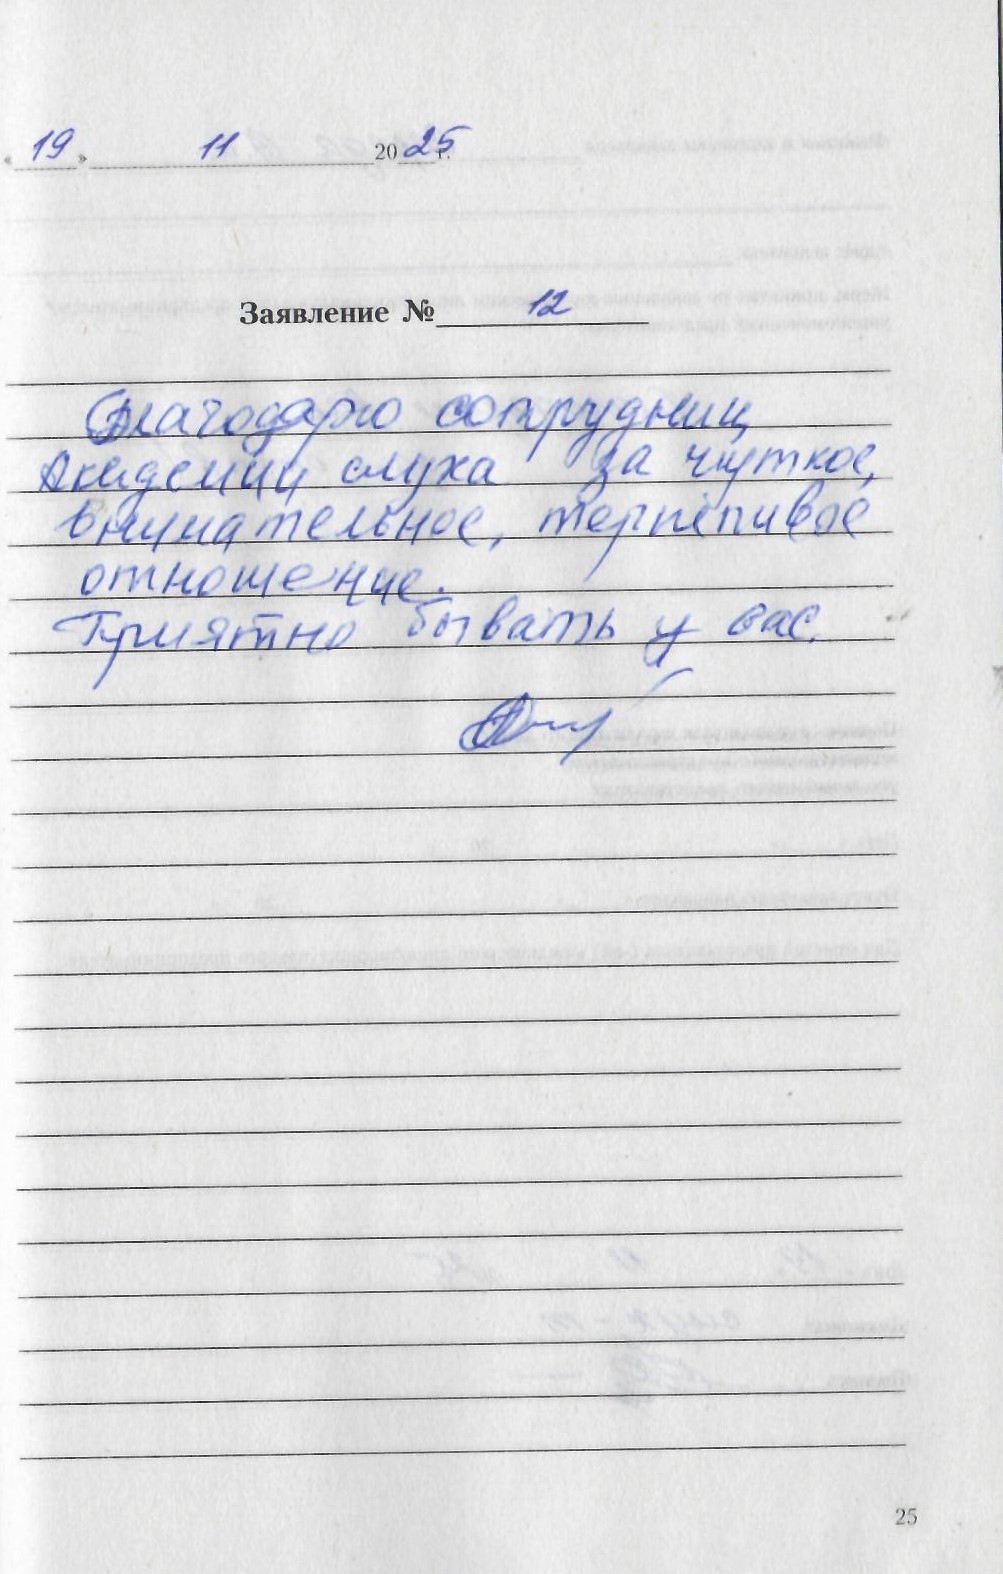 « 19 » 11 2025 г.
Заявление № 12
Благодарю сотрудниц
Академии слуха за чуткое,
внимательное, терпеливое
отношение.
Приятно бывать у вас.
25